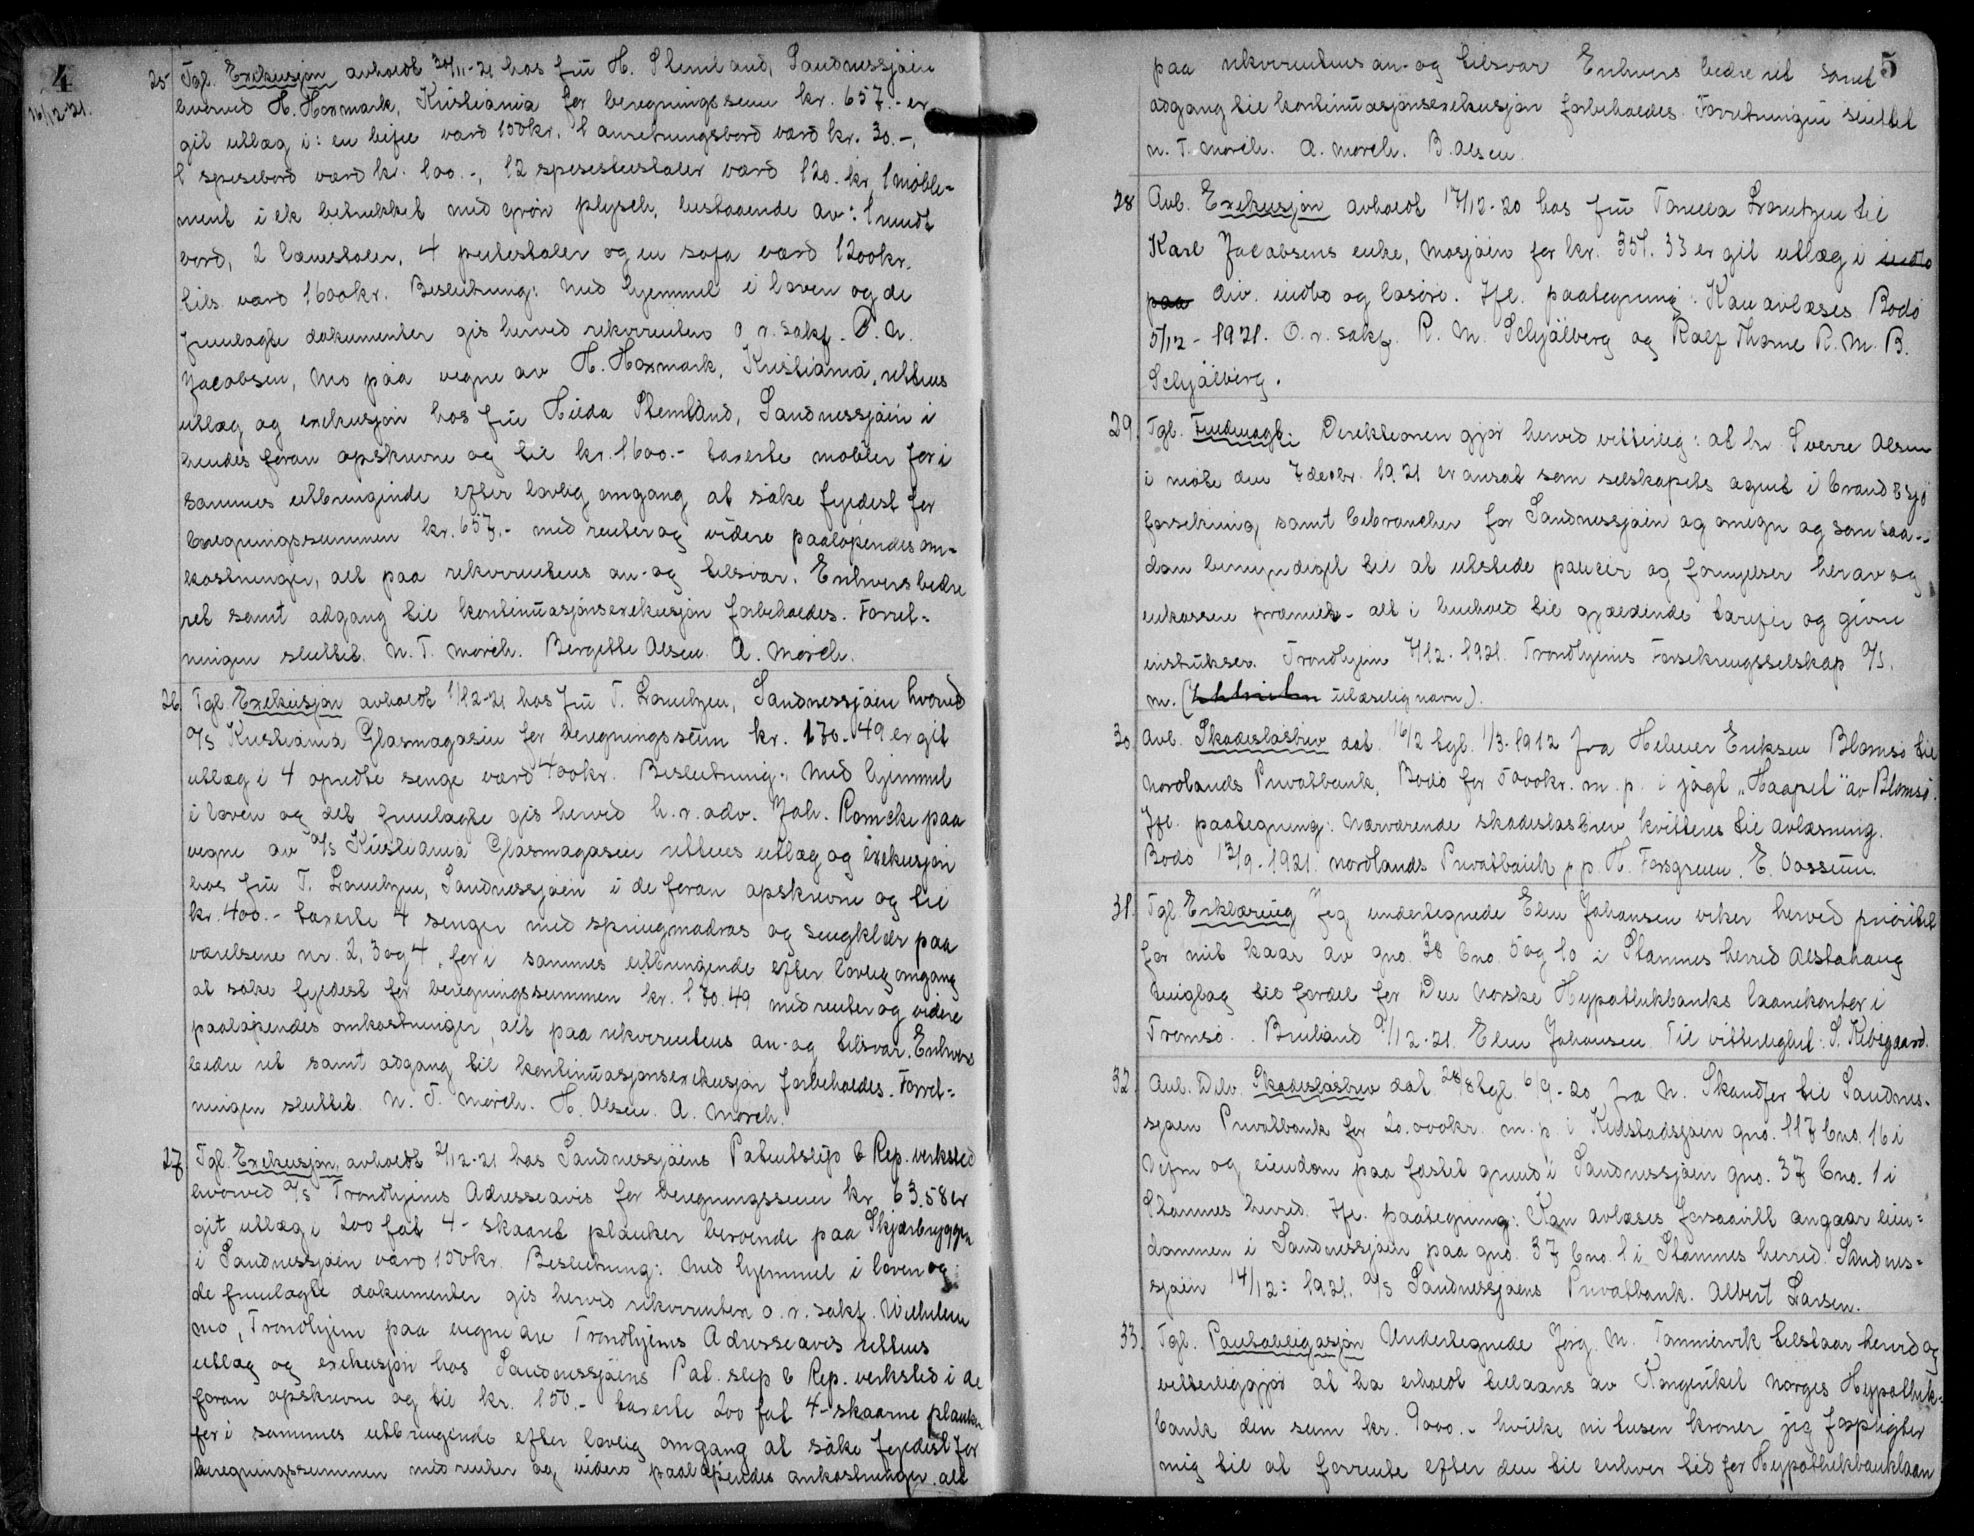 4
16/12-21.
25 Tgl. Exekusjon avholdt 30/11-21 hos fru H. Stemland, Sandnessjøen
hvorved H. Hoxmark, Kristiania for beregningssum kr. 657.- er
git utlæg i: en bifie værd 150kr. 1 anretningsbord værd kr. 30.-,
1 spisebord værd kr. 100.-, 12 spisestuestoler værd 120.kr, 1 møble-
ment i ek betrukket med grøn plysch, bestaaende av: 1 rundt
bord, 2 lænestoler, 4 putestoler og en sofa værd 1200kr.
tils. værd 1600kr. Beslutning: Med hjemmel i loven og de
fremlagte dokumenter gis herved rekvirenten o.r.sakf. O. N.
Jacobsen, Mo paa vegne av H. Hoxmark, Kristiania, rettens
utlæg og exekusjon hos fru Hilda Stemland, Sandnessjøen i
hendes foran opskrevne og til kr. 1600.- taxerte møbler for i
sammes utbringende efter lovlig omgang at søke fyldest for
beregningssummen kr. 657.- med renter og videre paaløpendes om-
kostninger, alt paa rekvirentens an- og tilsvar. Enhvers bedre
ret samt adgang til kontinuasjonsexekusjon forbeholdes. Forret-
ningen sluttet. N. T. Mørch. Bergitte Olsen. A. Mørch.
26 Tgl. Exekusjon avholdt 1/12-21 hos fru T. Lorentzen, Sandnessjøen hvorved
A/S Kristiania Glasmagasin for beregningssum kr. 170.49 er git
utlæg i 4 opredte senge værd 400kr. Beslutning: Med hjemmel
i loven og det fremlagte gis herved h.r.adv. Joh. Romcke paa
vegne av A/S Kristiania Glasmagasin rettens utlæg og exekusjon
hos fru T. Lorentzen, Sandnessjøen i de foran opskrevne og til
kr. 400.- taxerte 4 senger med springmadras og sengklær paa
værelsene nr. 2, 3 og 4, for i sammes utbringende efter lovlig omgang
at søke fyldest for beregningssummen kr. 170.49 med renter og videre
paaløpendes omkostninger, alt paa rekvirentens an- og tilsvar. Enhvers
bedre ret samt adgang til kontinuasjonsexekusjon forbeholdes. Forret-
ningen sluttet. N. T. Mørch. H. Olsen. A. Mørch.
27. Tgl. Exekusjon avholdt 2/12-21 hos Sandnessjøens Patentslip & Rep. verksted
hvorved A/S Trondhjems Adresseavis for beregningssum kr. 63.58 er
git utlæg i 200 fat 4-skaaret planker beroende paa Skjærbryggen
i Sandnessjøen værd 150kr. Beslutning: Med hjemmel i loven og
de fremlagte dokumenter gis herved rekvirenten o.r.sakf. Wilhelm
Mo, Trondhjem paa vegne av Trondhjems Adresseavis rettens
utlæg og exekusjon hos Sandnessjøens Pat. slip & Rep. verksted i de
foran opskrevne og til kr. 150.- taxerte 200 fat 4-skaarne planker
for i sammes utbringende efter lovlig omgang at søke fyldest for
beregningssummen med renter og videre paaløpendes omkostninger. alt
5
paa rekvirentens an- og tilsvar Enhvers bedre ret samt
adgang til kontinuasjonsexekusjon forbeholdes. Forretningen sluttet
N. T. Mørch. A. Mørch. B. Olsen.
28 Avl. Exekusjon avholdt 17/12-20 hos fru Tomilla Lorentzen til
Karl Jacobsens enke, Mosjøen for kr. 351.33 er git utlæg i indbo
paa div. indbo og løsøre. Jfl. paategning: Kan avlæses Bodø
5/12-1921. O.r.sakf. R. M. Schjølberg og Ralf Thorne R. M. B.
Schjølberg.
29. Tgl. Fuldmagt: Direktionen gjør herved vitterlig: at hr Sverre Olsen
i møte den 7 decbr. 1921 er ansat som selskapets agent i brand & sjø
forsikring, samt bibrancher for Sandnessjøen og omegn og som saa-
dan bemyndiget til at utstede policer og fornyelser herav og
inkassere præmier - alt i henhold til gjældende tarifer og givne
instrukser. Trondhjem 7/12-1921. Trondhjems Forsikringsselskap A/S.
m. ( ulæselig navn).
30. Avl. Skadesløsbrev dat. 16/2 tgl. 1/3-1912 fra Helmer Eriksen Blomsø til
Nordlands Privatbank, Bodø for 7000kr. m. p. i jagt „Haapet" av Blomsø.
Jfl. paategning: Nærværende skadesløsbrev kvitteres til avlæsning.
Bodø 13/9-1921. Nordlands Privatbank p.p. H. Forsgreen. E. Oossum.
31. Tgl. Erklæring Jeg undertegnede Elen Johansen viker herved prioritet
for mit kaar av gno. 38 bno. 5 og 10 i Stamnes herred Alstahaug
tinglag til fordel for Den Norske Hypothekbanks laanekontor i
Tromsø. . Breiland 9/12-21. Elen Johansen. Til vitterlighet: S. Kibsgaard.
32. Avl. Delv. Skadesløsbrev dat 28/8 tgl. 6/9-20 fra N. Skandfer til Sandnes-
sjøen Privatbank for 20.000kr. m. p. i Kulstadsjøen gno. 117 bno. 16 i
Vefsn og eiendom paa fæstet grund i Sandnessjøen gno. 37 bno. 1 i
Stamnes herred. Jfl. paategning: Kan avlæses forsaavitt angaar eien-
dommen i Sandnessjøen paa gno. 37 bno. 1 i Stamnes herred. Sandnes-
sjøen 14/12: 1921. A/S Sandnessjøens Privatbank. Albert Larsen.
33. Tgl. Pantobligasjon Undertegnede Jørg. M. Tommervik tilstaar herved og
vitterliggjør at ha erholdt tillaans av Kongeriket Norges Hypothek-
bank den sum kr. 9000.- hvilke ni tusen kroner jeg forpligter
mig til at forrente efter den til enhver tid for Hypothekbanklaan